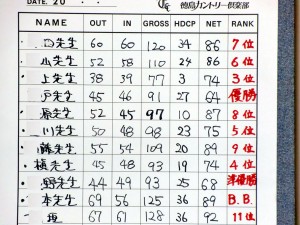 DATE. 20
徳島カントリー倶楽部
NAME OUT IN GROSS HDCP NET RANK
先生 60 60 120 34 86 7位
山先生 52 58 110 24 86 6位
上先生 38 39 77 3 74 3位
戸先生 45 46 91 27 64 優勝
原先生 52 45 97 10 87 8位
川先生 50 48 98 23 75 5位
藤先生 55 54 109 20 89 9位
槙先生 45 48 93 19 74 4位
野先生 44 49 93 25 68 準優勝
本先生 69 56 125 36 89 B.B.
67 61 128 36 92 11位